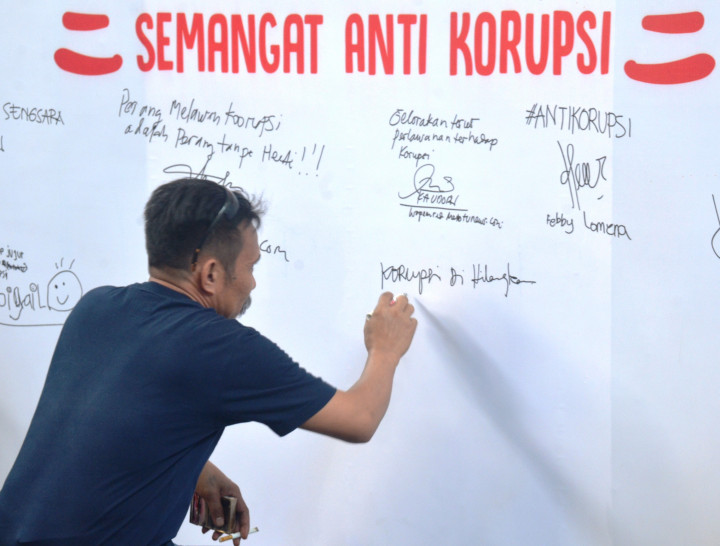 SEMANGAT ANTI KORUPSI
SENGSARA
Perang Melawan Koorupsi
adalah Perang tanpa Henti!!!
Gelorakan terus
perlawanan terhadap
Korupsi
#ANTIKORUPSI
Febby Lomena
com
juga
bigail
KORupsi di Hilangkan